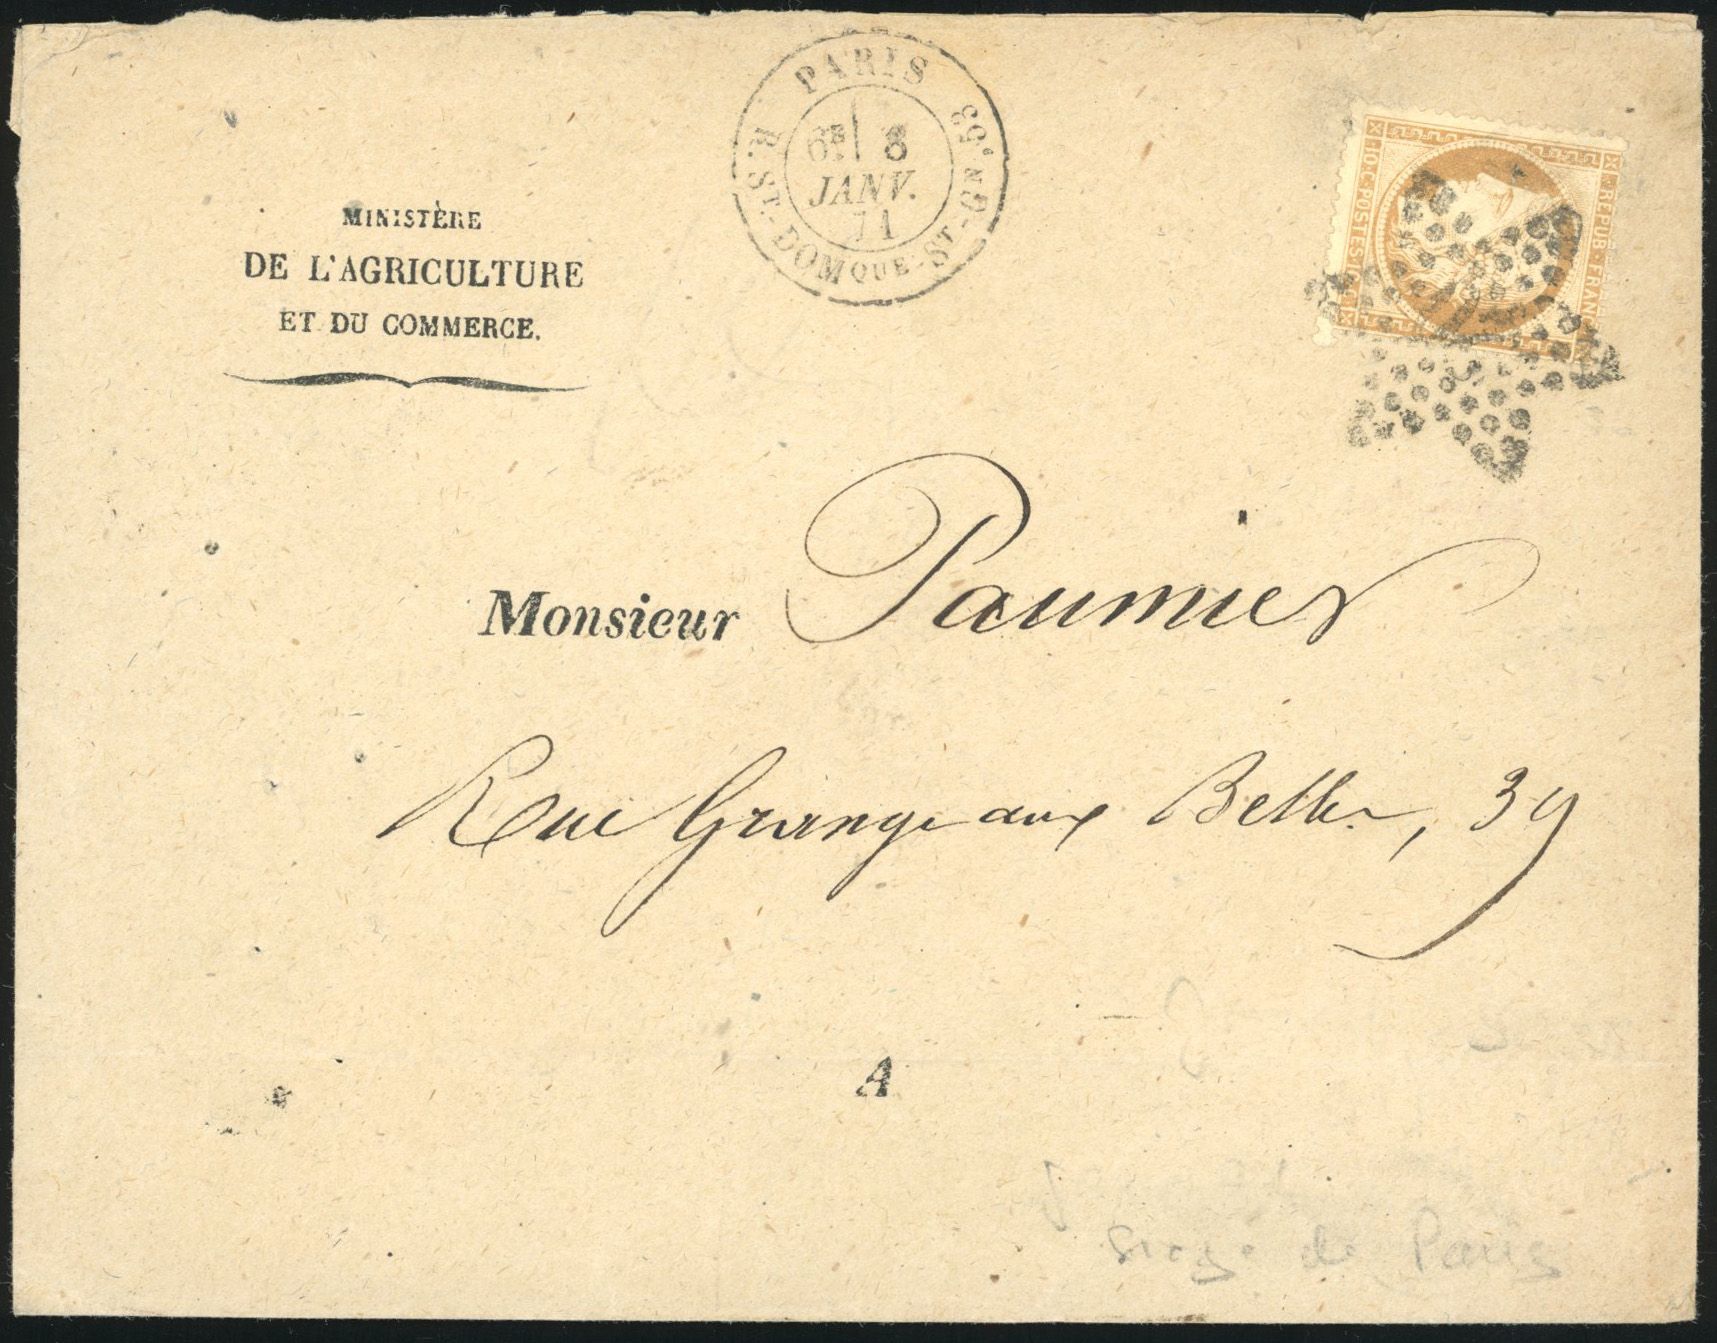 PARIS
6E 8
JANV.
71
R. ST-DOMQUE-ST-GN, 53
10·C·POSTES
REPUB·FRANC
MINISTÈRE
DE L'AGRICULTURE
ET DU COMMERCE.
Monsieur Paumier
Rue Grange aux Belles, 39
A
Siege de Paris